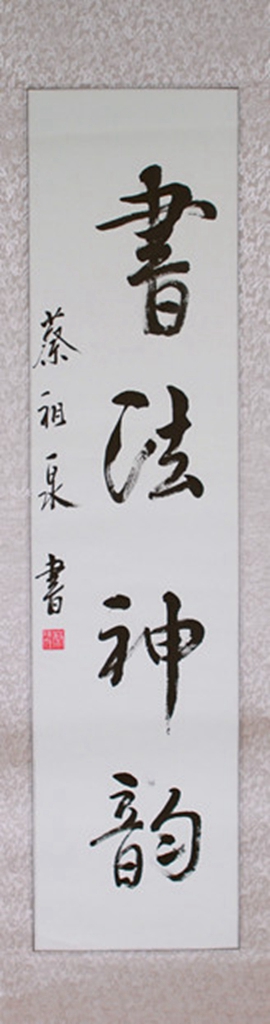 書法神韵
蔡祖泉書